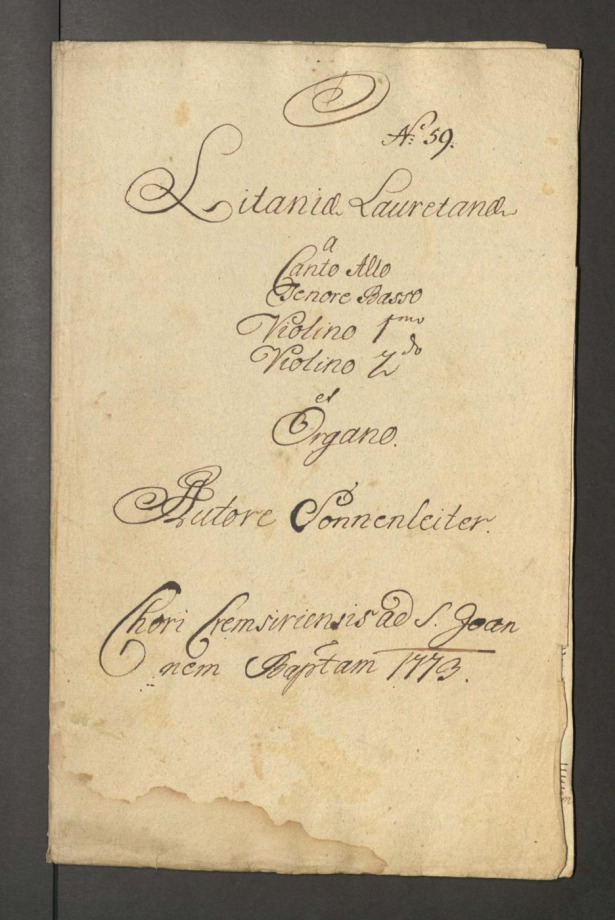 No 59.
Litaniæ Lauretanæ
a
Canto Alto
Tenore Basso
Violino 1mo
Violino 2do
et
Organo.
Autore Sonnenleiter.
Chori Cremsiriensis ad S. Joan
nem Baptam 1773.